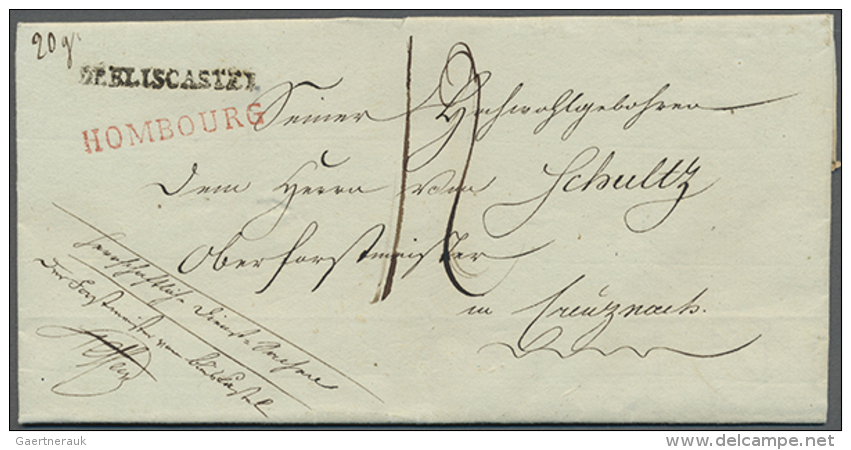 20 g.
BELISCASTEL
HOMBOURG
12
Seiner Hochwohlgebohren
Dem Herrn Von Schultz
Oberforstmeister
in Creuznach.
Herrschaftliche Dienst Sachen
Der Forstmeister von
Gaertnerauk
https://www.delcampe.net